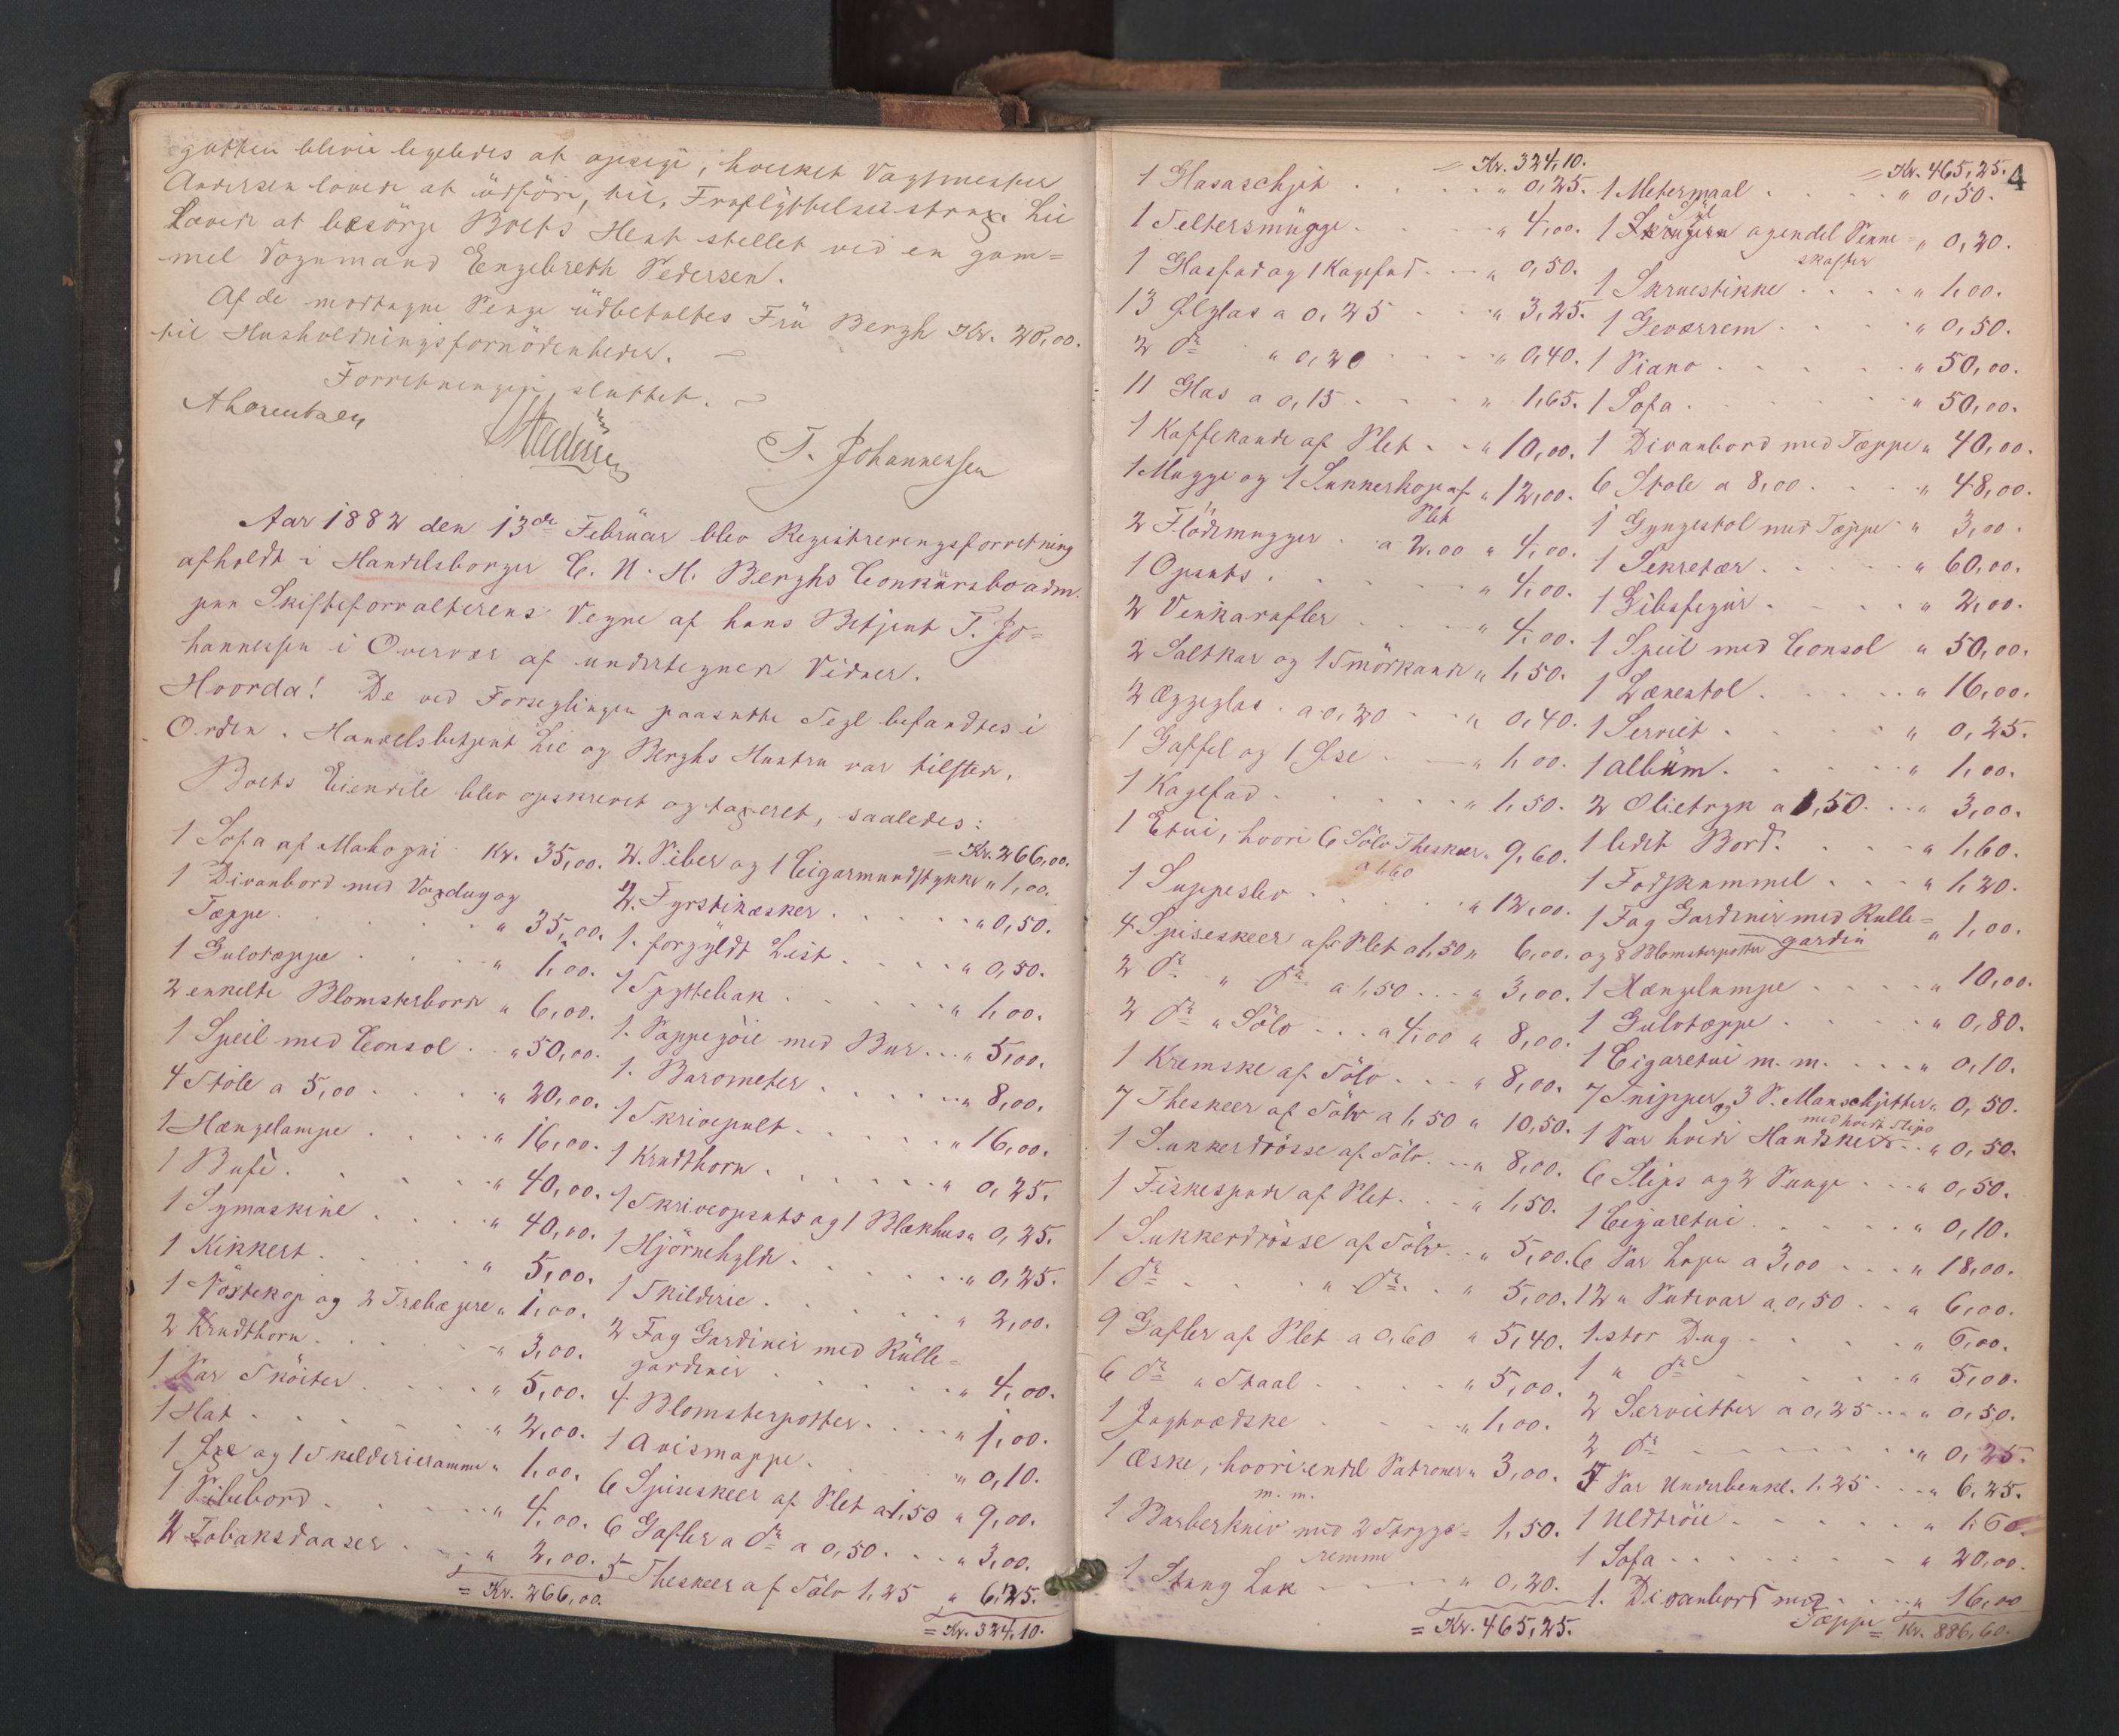 gutten blive ligeledes at opsige, hvilket Vagtmester
Andersen lovede at udföre, til Fraflÿttelse strax. Lie
Lovede at besörge Boets Hest stellet ved en gam=
mel Vognmand Engebreth Pedersen.
Af de modtagne Penge üdbetaltes Frü Bergh Kr. 20,00.
til Husholdningsfornödenheder. —
Forretningen sluttet. —
T. Johannessen
Aar 1882 den 13de Febrüar blev Registreringsforretning
afholdt i Handelsborger C. N. H. Berghs Conkürsbo adm.
paa Skifteforvalterens Vegne af hans Betjent T. Jo=
hannessen i Overvær af undertegnede Vidner.
Hvorda! De ved Forseglingen paasatte Segl befandtes i
Orden. Handelsbetjent Lie og Berghs Hustru var tilstede.
Boets Eiendele blev opskrevet og taxeret, saaledes:
1 Sofa af Mahogni Kr. 35,00.
1 Divanbord med Voxdug og
Tæppe . . . " 35,00.
1 Gulvtæppe . . . " 1,00.
2 enkelte Blomsterborde " 6,00.
1 Speil med Consol . . " 50,00.
4 Stole a 5,00 . . . " 20,00.
1 Hængelampe . . . " 16,00.
1 Bufè . . . " 40,00.
1 Symaskine . . . " 40,00.
1 Kikkert . . . " 5,00.
1 og 2 Træbægere " 1,00.
2 Krudthorn . . . " 3,00.
1 Par Sköiter . . . " 5,00.
1 Hat . . . " 2,00.
1 Øxe og 1 Skilderieramme " 1,00.
1 Pibebord . . . " 4,00.
2 Tobaksdaaser . . . " 2,00.
= Kr. 266,00.
= Kr. 266,00.
2. Piber og 1 Cigarmundstykke " 1,00.
2. Fyrstikæsker . . . " 0,50.
1. forgÿldt List . . . " 0,50.
1 Spyttebak . . . " 1,00.
1. Pappegöie med Bur . . . " 5,00.
1. Barometer . . . " 8,00.
1 Skrivepult . . . " 16,00.
1 Krudthorn . . . " 0,25.
1 Skriveopsats og 1 Blækhus " 0,25.
1 Hjörnehylde . . . " 0,25.
1 Skilderie . . . " 2,00.
2 Fag Gardiner med Rülle=
gardiner . . . " 4,00.
4 Blomsterpotter . . . " 1,00.
1 Avismappe . . . " 0,10.
6 Spiseskeer af Plet a 1,50 " 9,00.
6 Gafler a do a 0,50 . . . " 3,00.
5 Theskeer af Sölv 1,25 " 6,25.
= Kr. 324,10.
4
= Kr. 324,10.
1 Glasaschjet . . . " 0,25.
1 Seltersmügge . . . " 4,00.
1 Glasfad og 1 Kagefad . . . " 0,50.
13 Ølglas a 0,25 . . . " 3,25.
2 do " 0,20 . . . " 0,40.
11 Glas a 0,15 . . . " 1,65.
1 Kaffekande af Plet . . " 10,00.
1 Mugge og 1 Sukkerkop af " 12,00.
Plet
2 Flödemugger . a 2,00 " 4,00.
1 Opsats . . . " 4,00.
2 Vinkarafler . . . " 4,00.
2 Saltkar og 1 Smörkande " 1,50.
2 Æggeglas . a 0,20 . . . " 0,40.
1 Gaffel og 1 Øse . . . " 1,00.
1 Kagefad . . . " 1,50.
1 Etui, hvori 6 Sölv Theskeer " 9,60.
a 1,60
1 Suppeslev . . . " 12,00.
4 Spiseskeer af Plet a 1,50 " 6,00.
2 do " do a 1,50 . . . " 3,00.
2 do " Sölv . . . a 4,00 " 8,00.
1 Kremske af Sölv . . . " 8,00.
7 Theskeer af Sölv a 1,50 " 10,50.
1 Sukkerdrösse af Sölv . . . " 8,00.
1 Fiskespade af Plet . . . " 1,50.
1 Sukkerdrösse af Sölv . . " 5,00.
1 do . . . " do . . " 5,00.
9 Gafler af Plet a 0,60 " 5,40.
6 do " Staal . . . " 5,00.
1 Jagtvædske . . . " 1,00.
1 Æske, hvori endel Patroner " 3,00.
m. m.
1 Barberkniv med 2 Stryge= 1,50.
remme
1 Stang Lak . . . " 0,20.
= Kr. 465,25.
= Kr. 465,25.
1 Metermaal . . . " 0,50.
1 Syl
og endel Penne= " 0,20.
skafter
1 Skruestikke . . . " 1,00.
1 Geværrem . . . " 0,50.
1 Piano . . . " 50,00.
1 Sofa . . . " 50,00.
1 Divanbord med Tæppe " 40,00.
6 Stole a 8,00 . . . " 48,00.
1 Gyngestol med Tæppe " 3,00.
1 Sekretær . . . " 60,00.
1 Gibsfigür . . . " 2,00.
1 Speil med Consol " 50,00.
1 Lænestol . . . " 16,00.
1 Serviet . . . " 0,25.
1 Albüm . . . " 1,00.
2 Olietryk a 1,50 . . . " 3,00.
1 lidet Bord . . . " 1,60.
1 Fodskammel . . . " 1,20.
1 Fag Gardiner med Rulle= " 1,00.
gardin
og 8 Blomsterpotter
1 Hængelampe . . . " 10,00.
1 Gulvtæppe . . . " 0,80.
1 Cigaretui m. m. . . . " 0,10.
7 Snipper og 3 P. Manschjetter " 0,50.
med hvidt Slips
1 Par hvide Handsker . . " 0,50.
6 Slips og 2 Punge . . . " 0,50.
1 Cigaretui . . . " 0,10.
6 Par Lagen a 3,00 . . . " 18,00.
12 " Pudevar a 0,50 . . " 6,00.
1 stor Dug . . . " 6,00.
1 " do . . . " 5,00.
2 Servietter a 0,25 . . . " 0,50.
2 do . . . " 0,25.
5 Par Underbenkl. 1,25 . . . " 6,25.
1 Uldtröie . . . " 1,60.
1 Sofa . . . " 20,00.
1. Divanbord med . . " 16,00
Tæppe = Kr. 886,60.